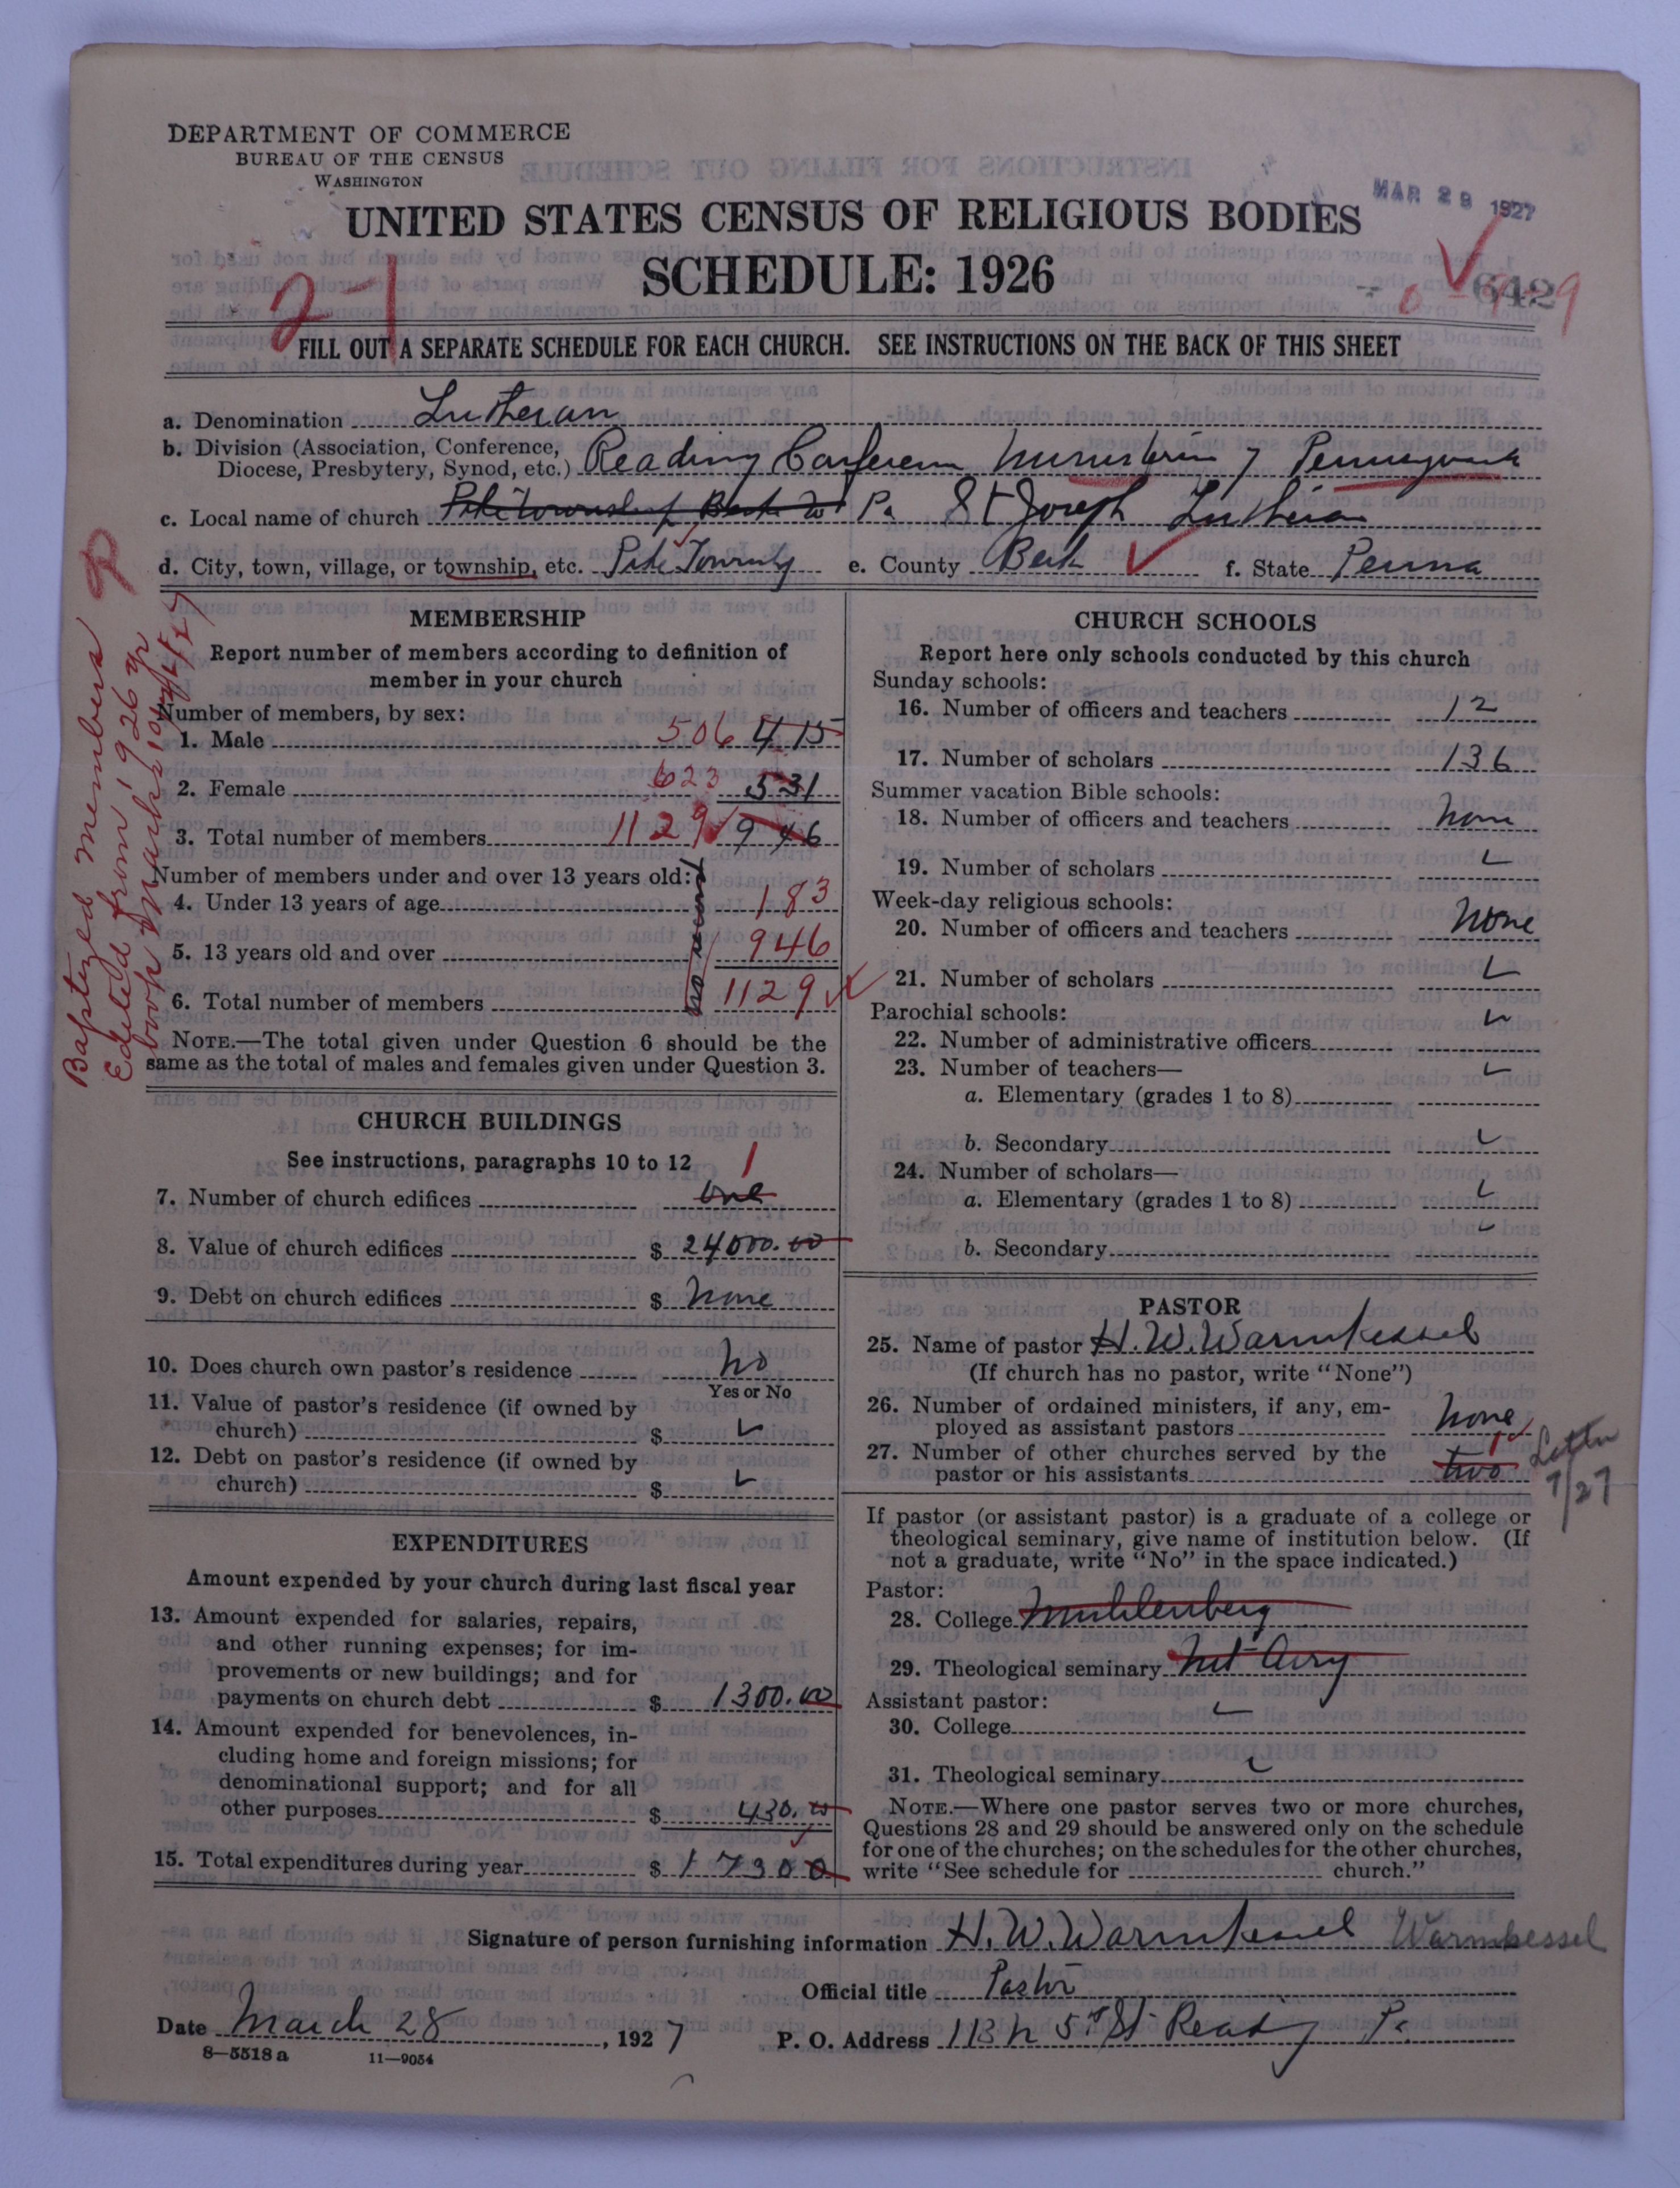 DEPARTMENT OF COMMERCE
BUREAU OF THE CENSUS
WASHINGTON
MAR 29 1927
UNITED STATES CENSUS OF RELIGIOUS BODIES
SCHEDULE: 1926
2-1
FILL OUT A SEPARATE SCHEDULE FOR EACH CHURCH. SEE INSTRUCTIONS ON THE BACK OF THIS SHEET
a. Denomination Lutheran
b. Division (Association, Conference,
Diocese, Presbytery, Synod, etc.) Reading Conference Ministerium of Pennsylvania
c. Local name of church Pike Township Pa St Joseph Lutheran
d. City, town, village, or township, etc. Pike Township e. County Berk f. State Penna
Baptized members
Edited from 1926 yr
book
MEMBERSHIP
Report number of members according to definition of
member in your church
Number of members, by sex:
1. Male 506 415
2. Female 623 531
3. Total number of members 1129 946
Number of members under and over 13 years old:
no record
4. Under 13 years of age 183
5. 13 years old and over 946
6. Total number of members 1129
NOTE.—The total given under Question 6 should be the
same as the total of males and females given under Question 3.
CHURCH BUILDINGS
See instructions, paragraphs 10 to 12
7. Number of church edifices one 1
8. Value of church edifices $ 24000.00
9. Debt on church edifices $ none
10. Does church own pastor's residence No
Yes or No
11. Value of pastor's residence (if owned by
church) $
12. Debt on pastor's residence (if owned by
church) $
EXPENDITURES
Amount expended by your church during last fiscal year
13. Amount expended for salaries, repairs,
and other running expenses; for im-
provements or new buildings; and for
payments on church debt $ 1300.00
14. Amount expended for benevolences, in-
cluding home and foreign missions; for
denominational support; and for all
other purposes $ 430.00
15. Total expenditures during year $ 17300
CHURCH SCHOOLS
Report here only schools conducted by this church
Sunday schools:
16. Number of officers and teachers 12
17. Number of scholars 136
Summer vacation Bible schools:
18. Number of officers and teachers None
19. Number of scholars
Week-day religious schools:
20. Number of officers and teachers None
21. Number of scholars
Parochial schools:
22. Number of administrative officers
23. Number of teachers—
a. Elementary (grades 1 to 8)
b. Secondary
24. Number of scholars—
a. Elementary (grades 1 to 8)
b. Secondary
PASTOR
25. Name of pastor H. W. Warmkessel
(If church has no pastor, write "None")
26. Number of ordained ministers, if any, em-
ployed as assistant pastors None
27. Number of other churches served by the
pastor or his assistants two 1 Letter
7/27
If pastor (or assistant pastor) is a graduate of a college or
theological seminary, give name of institution below. (If
not a graduate, write "No" in the space indicated.)
Pastor:
28. College Muhlenberg
29. Theological seminary Mt Airy
Assistant pastor:
30. College
31. Theological seminary
NOTE.—Where one pastor serves two or more churches,
Questions 28 and 29 should be answered only on the schedule
for one of the churches; on the schedules for the other churches,
write "See schedule for church."
Signature of person furnishing information H. W. Warmkessel Warmkessel
Official title Pastor
Date March 28, 1927 P. O. Address 113 N 5th St Reading Pa
8—5518a 11—9054